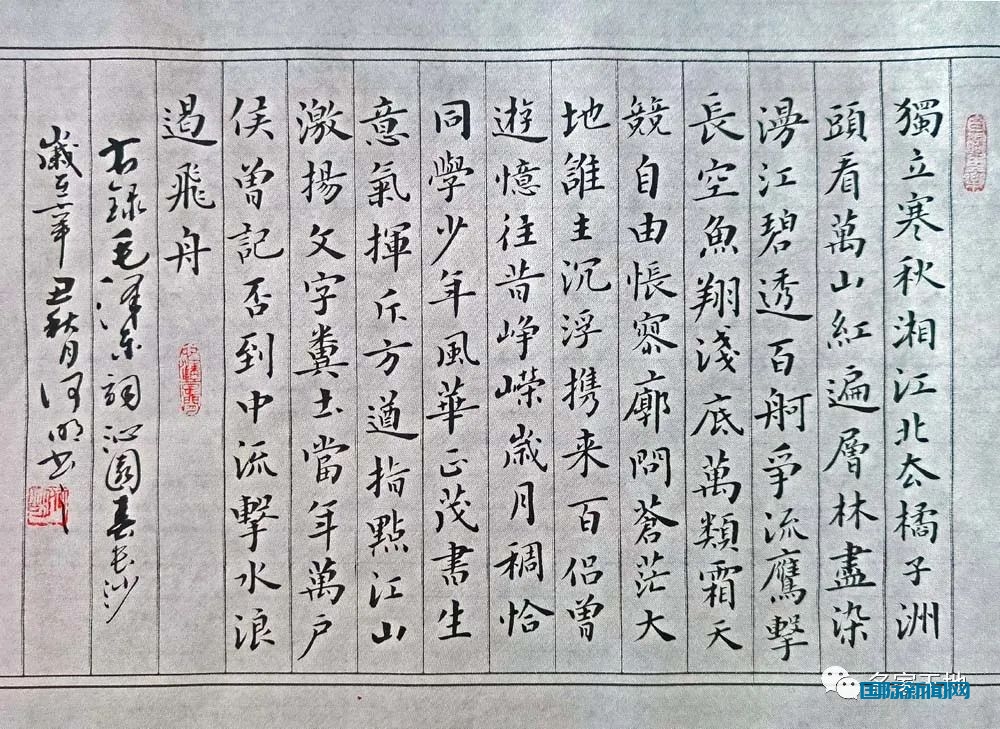 獨立寒秋湘江北去橘子洲
頭看萬山紅遍層林盡染
漫江碧透百舸爭流鷹擊
長空魚翔淺底萬類霜天
競自由悵寥廓問蒼茫大
地誰主沉浮携来百侣曾
遊憶往昔崢嶸歲月稠恰
同學少年風華正茂書生
意氣揮斥方遒指點江山
激揚文字糞土當年萬户
侯曾記否到中流擊水浪
遏飛舟
右錄毛澤東詞沁園春长沙
歲在辛丑秋月河明书
国际新闻网